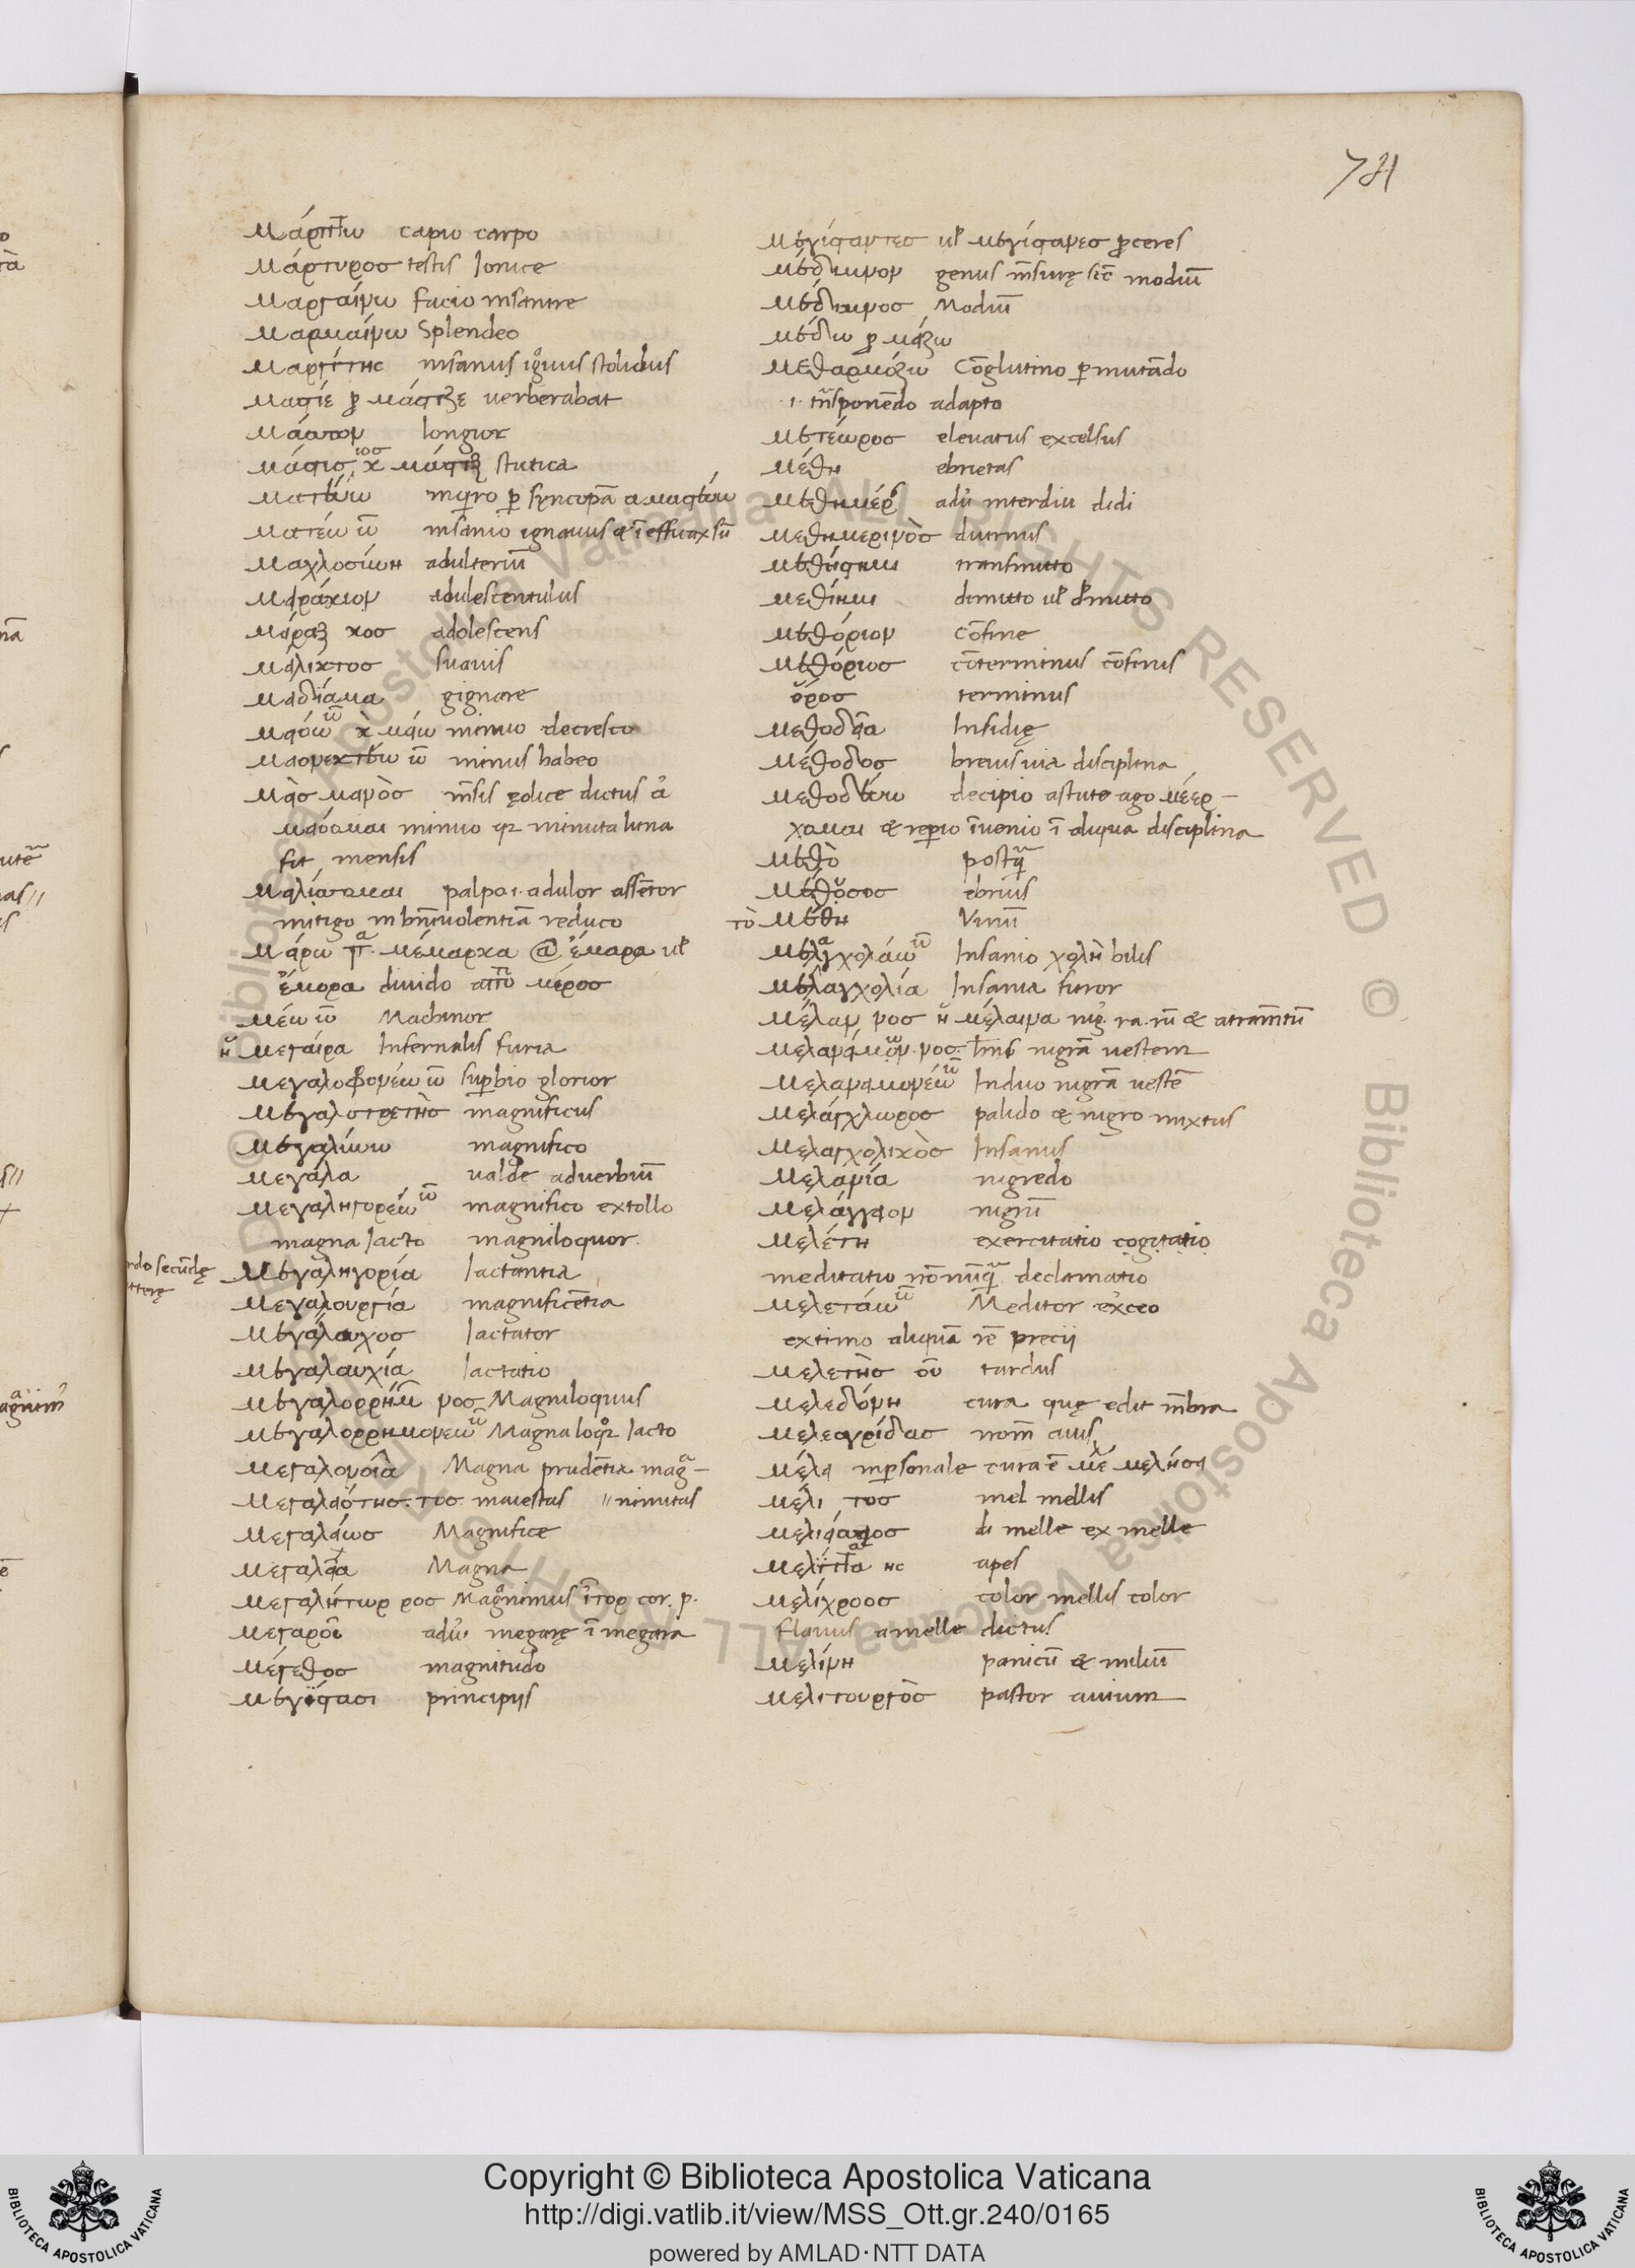 781
Μάρπτω capio carpo
Μάρτυρος testis Ionice
Μαργαίνω facio insanire
Μαρμαίρω Splendeo
Μαργίτης insanus stolidus
Μάστιε ꝓ μάστιζε uerberabat
Μάσσον longior
μάστις μάστιξ scutica
Ματεύω inqͥro ꝑ syncopā a μαστεύω
Ματέω ῶ insanio ignauus īefficax sū
Μαχλοσύνη adulteriū
Μειράκιον adulescentulus
Μείραξ κος adolescens
Μείλικτος suauis
Μειδίαμα
Μειόω ῶ μείω minuo decresco
Μειονεκτέω ῶ minus habeo
Μεὶς μεινὸς m̄sis ęolice dictus
μειόομαι minuo minuta luna
fit mensis
Μειλίσσομαι palpo .i. adulor
mitigo in reduco
Μείρω μέμαρκα ἔμαρα ul
ἔμορα diuido ἀπὸ μέρος
Μέω ῶ Machinor
ἡ Μεγαίρα Infernalis furia
Μεγαλοφρονέω ῶ suꝑbio glorior
Μεγαλοπρεπὴς magnificus
Μεγαλύνω magnifico
Μεγάλα ualde aduerbiū
Μεγαληγορέω ῶ magnifico extollo
magna Iacto magniloquor
rdo secūdę
tterę
Μεγαληγορία Iactantia
Μεγαλουργία magnificētia
Μεγάλαυχος Iactator
Μεγαλαυχία Iactatio
Μεγαλορρήμ νος Magniloquus
Μεγαλορρημονεω ῶ Magna loqr Iacto
Μεγαλονοία Magna prudētia mag –
Μεγαλειότης τος maiestas // nimitas
Μεγαλείως Magnifice
Μεγαλεῖα Magna
Μεγαλήτωρ ρος ἦτορ cor. p.
Μεγαροῖ adu̇ megarę ī megara
Μέγεθος magnitudo
Μεγίστασι principijs
Μεγίσταντες ul μεγίστανες ꝓceres
Μέδιμνον genus m̄surę modiū
Μέδιμνος Modiū
μέδω ꝓ
Μεθαρμόζω Cōglutino ꝑmutādo
.i. trāsponēdo adapto
Μετέωρος eleuatus excelsus
Μέθη ebrietas
Μεθημέρ adu̇ interdiu
Μεθημερινὸς diurnus
Μεθίστημι transmitto
μεθίημι dimitto ul
Μεθόριον cōfine
Μεθόριος cōterminus cōfinis
ὅρος terminus
Μεθοδεία Insidię
Μέθοδος breuis uia disciplina
Μεθοδεύω decipio astute ago
χομαι & reperio īuenio ī aliqua disciplina
Μεθὸ postq̄
Μέθυσος ebrius
τὸ Μέθη Vinū
Μελαγχολάω ῶ Insanio χολὴ bilis
Μελαγχολία Insania furor
Μέλαν νος ἡ μέλαινα nig̉ ra. rū & atram̄tū
nigrā uestem
Μελανειμονέω ῶ Induo nigrā uestē
Μελάγχλωρος palido & nigro mixtus
Μελαγχολικὸς Insanus
Μελανία nigredo
Μελάντερον nigrū
Μελέτη exercitatio cogitatio
meditatio nōnūq̄ declamatio
Μελετάω ῶ Meditor exceo
extimo aliquā rē precij
Μελετὴς οῦ tardus
Μελεδώνη cura quę edit m̄bra
Μελεαγρίδας auis
Μέλει inpersonale cura ē μελήσει
Μέλι τος mel mellis
di melle ex melle
Μέλιττα ης apes
Μελίχροος color mellis color
flauus a melle dictus
Μελίνη panicū & miliū
Μελιτουργὸς pastor auium
Copyright © Biblioteca Apostolica Vaticana
http://digi.vatlib.it/view/MSS_Ott.gr.240/0165
powered by AMLAD·NTT DATA